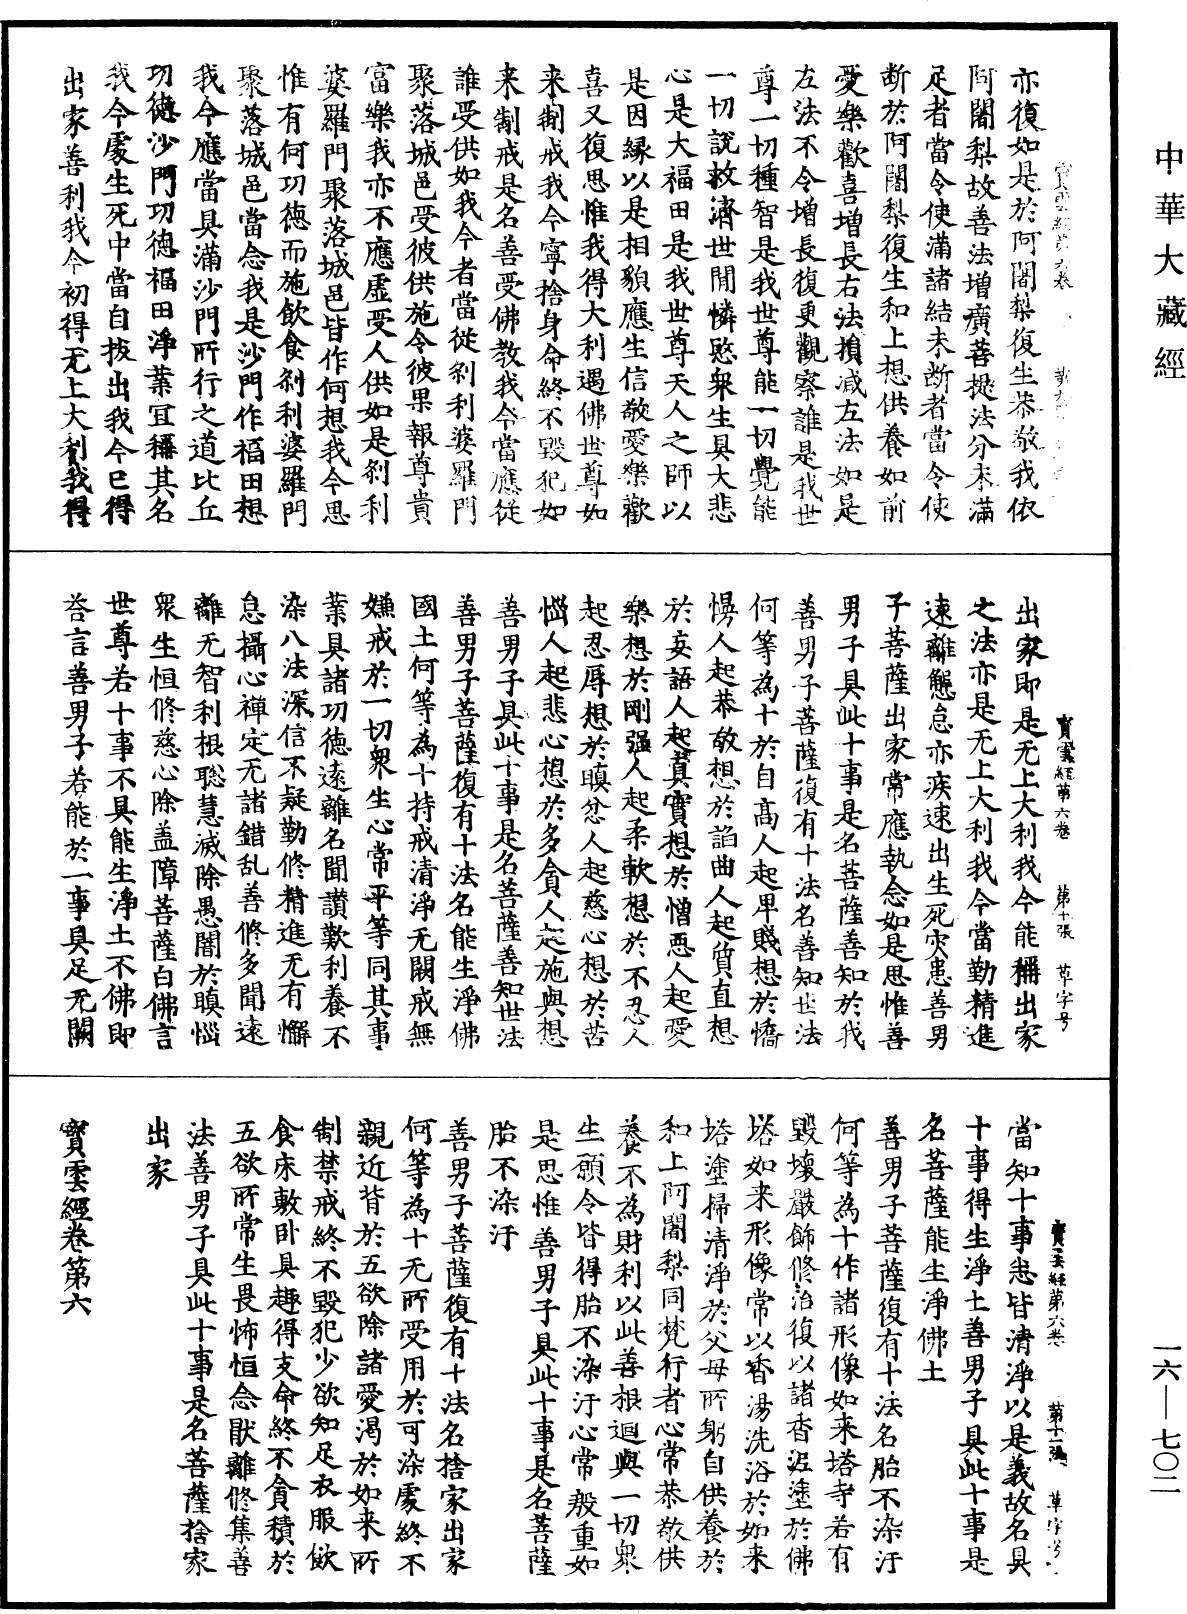 中華大藏經
一六—七〇二
亦復如是於阿闍梨復生恭敬我依
阿闍梨故善法增廣菩提法分未滿
足者當令使滿諸結未断者當令使
断於阿闍梨復生和上想供養如前
愛樂歡喜增長右法損减左法如是
左法不令增長復更觀察誰是我世
尊一切種智是我世尊能一切覺能
一切說救濟世間憐愍衆生具大悲
心是大福田是我世尊天人之師以
是因緣以是相貌應生信敬愛樂歡
喜又復思惟我得大利遇佛世尊如
来制戒我今寧捨身命終不毀犯如
来制戒是名善受佛教我今當應從
誰受供如我今者當從刹利婆羅門
聚落城邑受彼供施令彼果報尊貴
富樂我亦不應虚受人供如是刹利
婆羅門聚落城邑皆作何想我今思
惟有何功德而施飲食刹利婆羅門
聚落城邑當念我是沙門作福田想
我今應當具滿沙門所行之道比丘
功德沙門功德福田淨業宜稱其名
我今處生死中當自拔出我今已得
出家善利我今初得无上大利我得
寶雲經第六卷　第十張　草字号
出家即是无上大利我今能稱出家
之法亦是无上大利我今當勤精進
速離懈怠亦疾速出生死灾患善男
子菩薩出家常應執念如是思惟善
男子具此十事是名菩薩善知於我
善男子菩薩復有十法名善知世法
何等為十於自高人起卑賤想於憍
慢人起恭敬想於諂曲人起質直想
於妄語人起真實想於憎惡人起愛
樂想於剛强人起柔軟想於不忍人
起忍辱想於瞋忿人起慈心想於苦
惱人起悲心想於多貪人起施與想
善男子具此十事是名菩薩善知世法
善男子菩薩復有十法名能生淨佛
國土何等為十持戒清淨无闕戒無
嫌戒於一切衆生心常平等同其事
業具諸功德遠離名聞讃歎利養不
染八法深信不疑勤修精進无有懈
怠攝心禅定无諸錯乱善修多聞遠
離无智利根聡慧滅除愚闇於瞋惱
衆生恒修慈心除盖障菩薩白佛言
世尊若十事不具能生淨土不佛即
荅言善男子若能於一事具足无闕
寶雲經第六卷　第十一張　草字号
當知十事悉皆清淨以是義故名具
十事得生淨土善男子具此十事是
名菩薩能生淨佛土
善男子菩薩復有十法名胎不染汙
何等為十作諸形像如来塔寺若有
毀壞嚴飾修治復以諸香泥塗於佛
塔如来形像常以香湯洗浴於如来
塔塗掃清淨於父母所躬自供養於
和上阿闍梨同梵行者心常恭敬供
養不為財利以此善根迴與一切衆
生願令皆得胎不染汙心常殷重如
是思惟善男子具此十事是名菩薩
胎不染汙
善男子菩薩復有十法名捨家出家
何等為十无所受用於可染處終不
親近背於五欲除諸愛渴於如来所
制禁戒終不毀犯少欲知足衣服飲
食床敷卧具趣得支命終不貪積於
五欲所常生畏怖恒念猒離修集善
法善男子具此十事是名菩薩捨家
出家
寶雲經卷第六